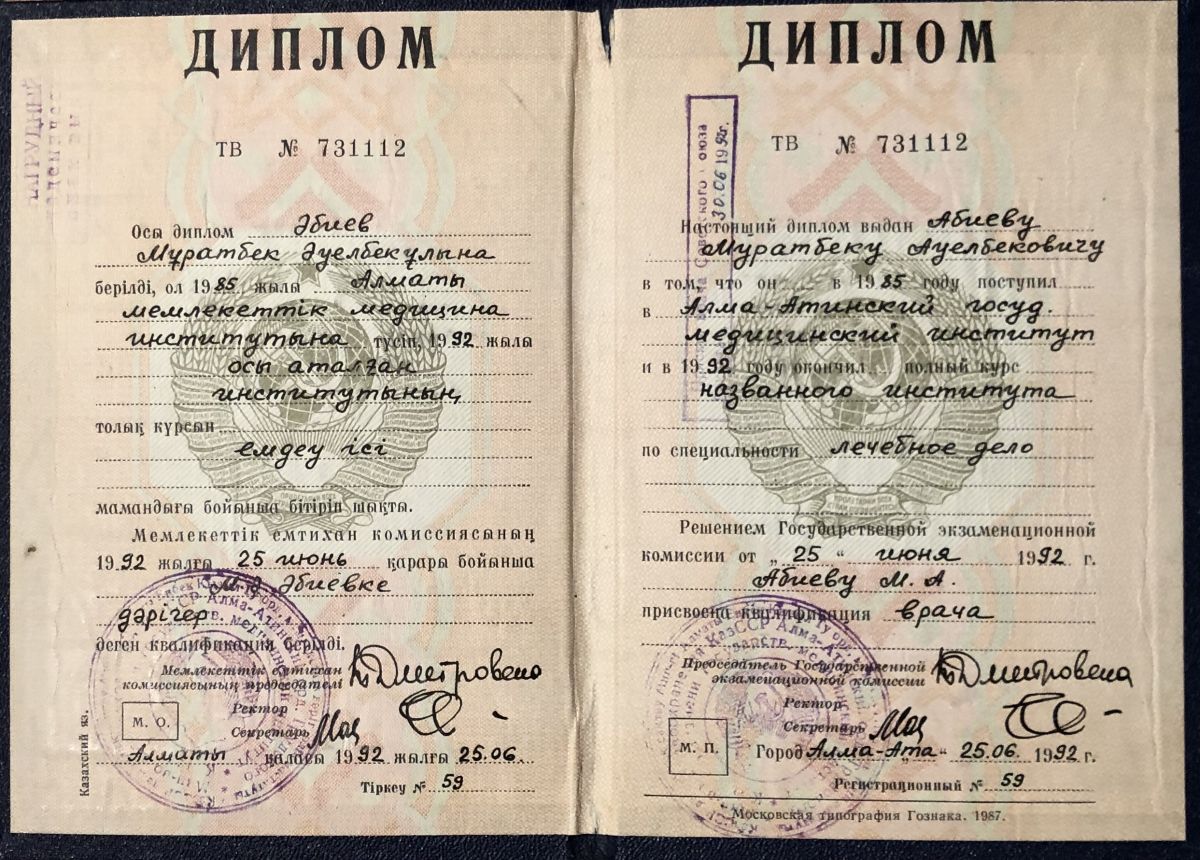 ДИПЛОМ
ТВ № 731112
Осы диплом Әбиев
Мұратбек Әуелбекұлына
берілді, ол 1985 жылы Алматы
мемлекеттік медицина
институтына түсіп, 1992 жылы
осы аталған
институтының
толық курсын
емдеу ісі
мамандығы бойынша бітіріп шықты.
Мемлекеттік емтихан комиссиясының
1992 жылғы 25 июнь қарары бойынша
М.Ә. Әбиевке
дәрігер
деген квалификация берілді.
Мемлекеттік емтихан
комиссиясының председателі
Ректор
Секретарь
М. О.
Алматы қаласы 1992 жылғы 25.06.
Тіркеу № 59
Казахский яз.
ДИПЛОМ
ТВ № 731112
30.06 1992г.
Настоящий диплом выдан Абиеву
Муратбеку Ауелбековичу
в том, что он в 1985 году поступил
в Алма-Атинский госуд.
медицинский институт
и в 1992 году окончил полный курс
названного института
по специальности лечебное дело
Решением Государственной экзаменационной
комиссии от „25“ июня 1992 г.
Абиеву М. А.
присвоена квалификация врача
Председатель Государственной
экзаменационной комиссии
Ректор
Секретарь
М. П.
Город Алма-Ата 25.06. 1992 г.
Регистрационный № 59
Московская типография Гознака. 1987.